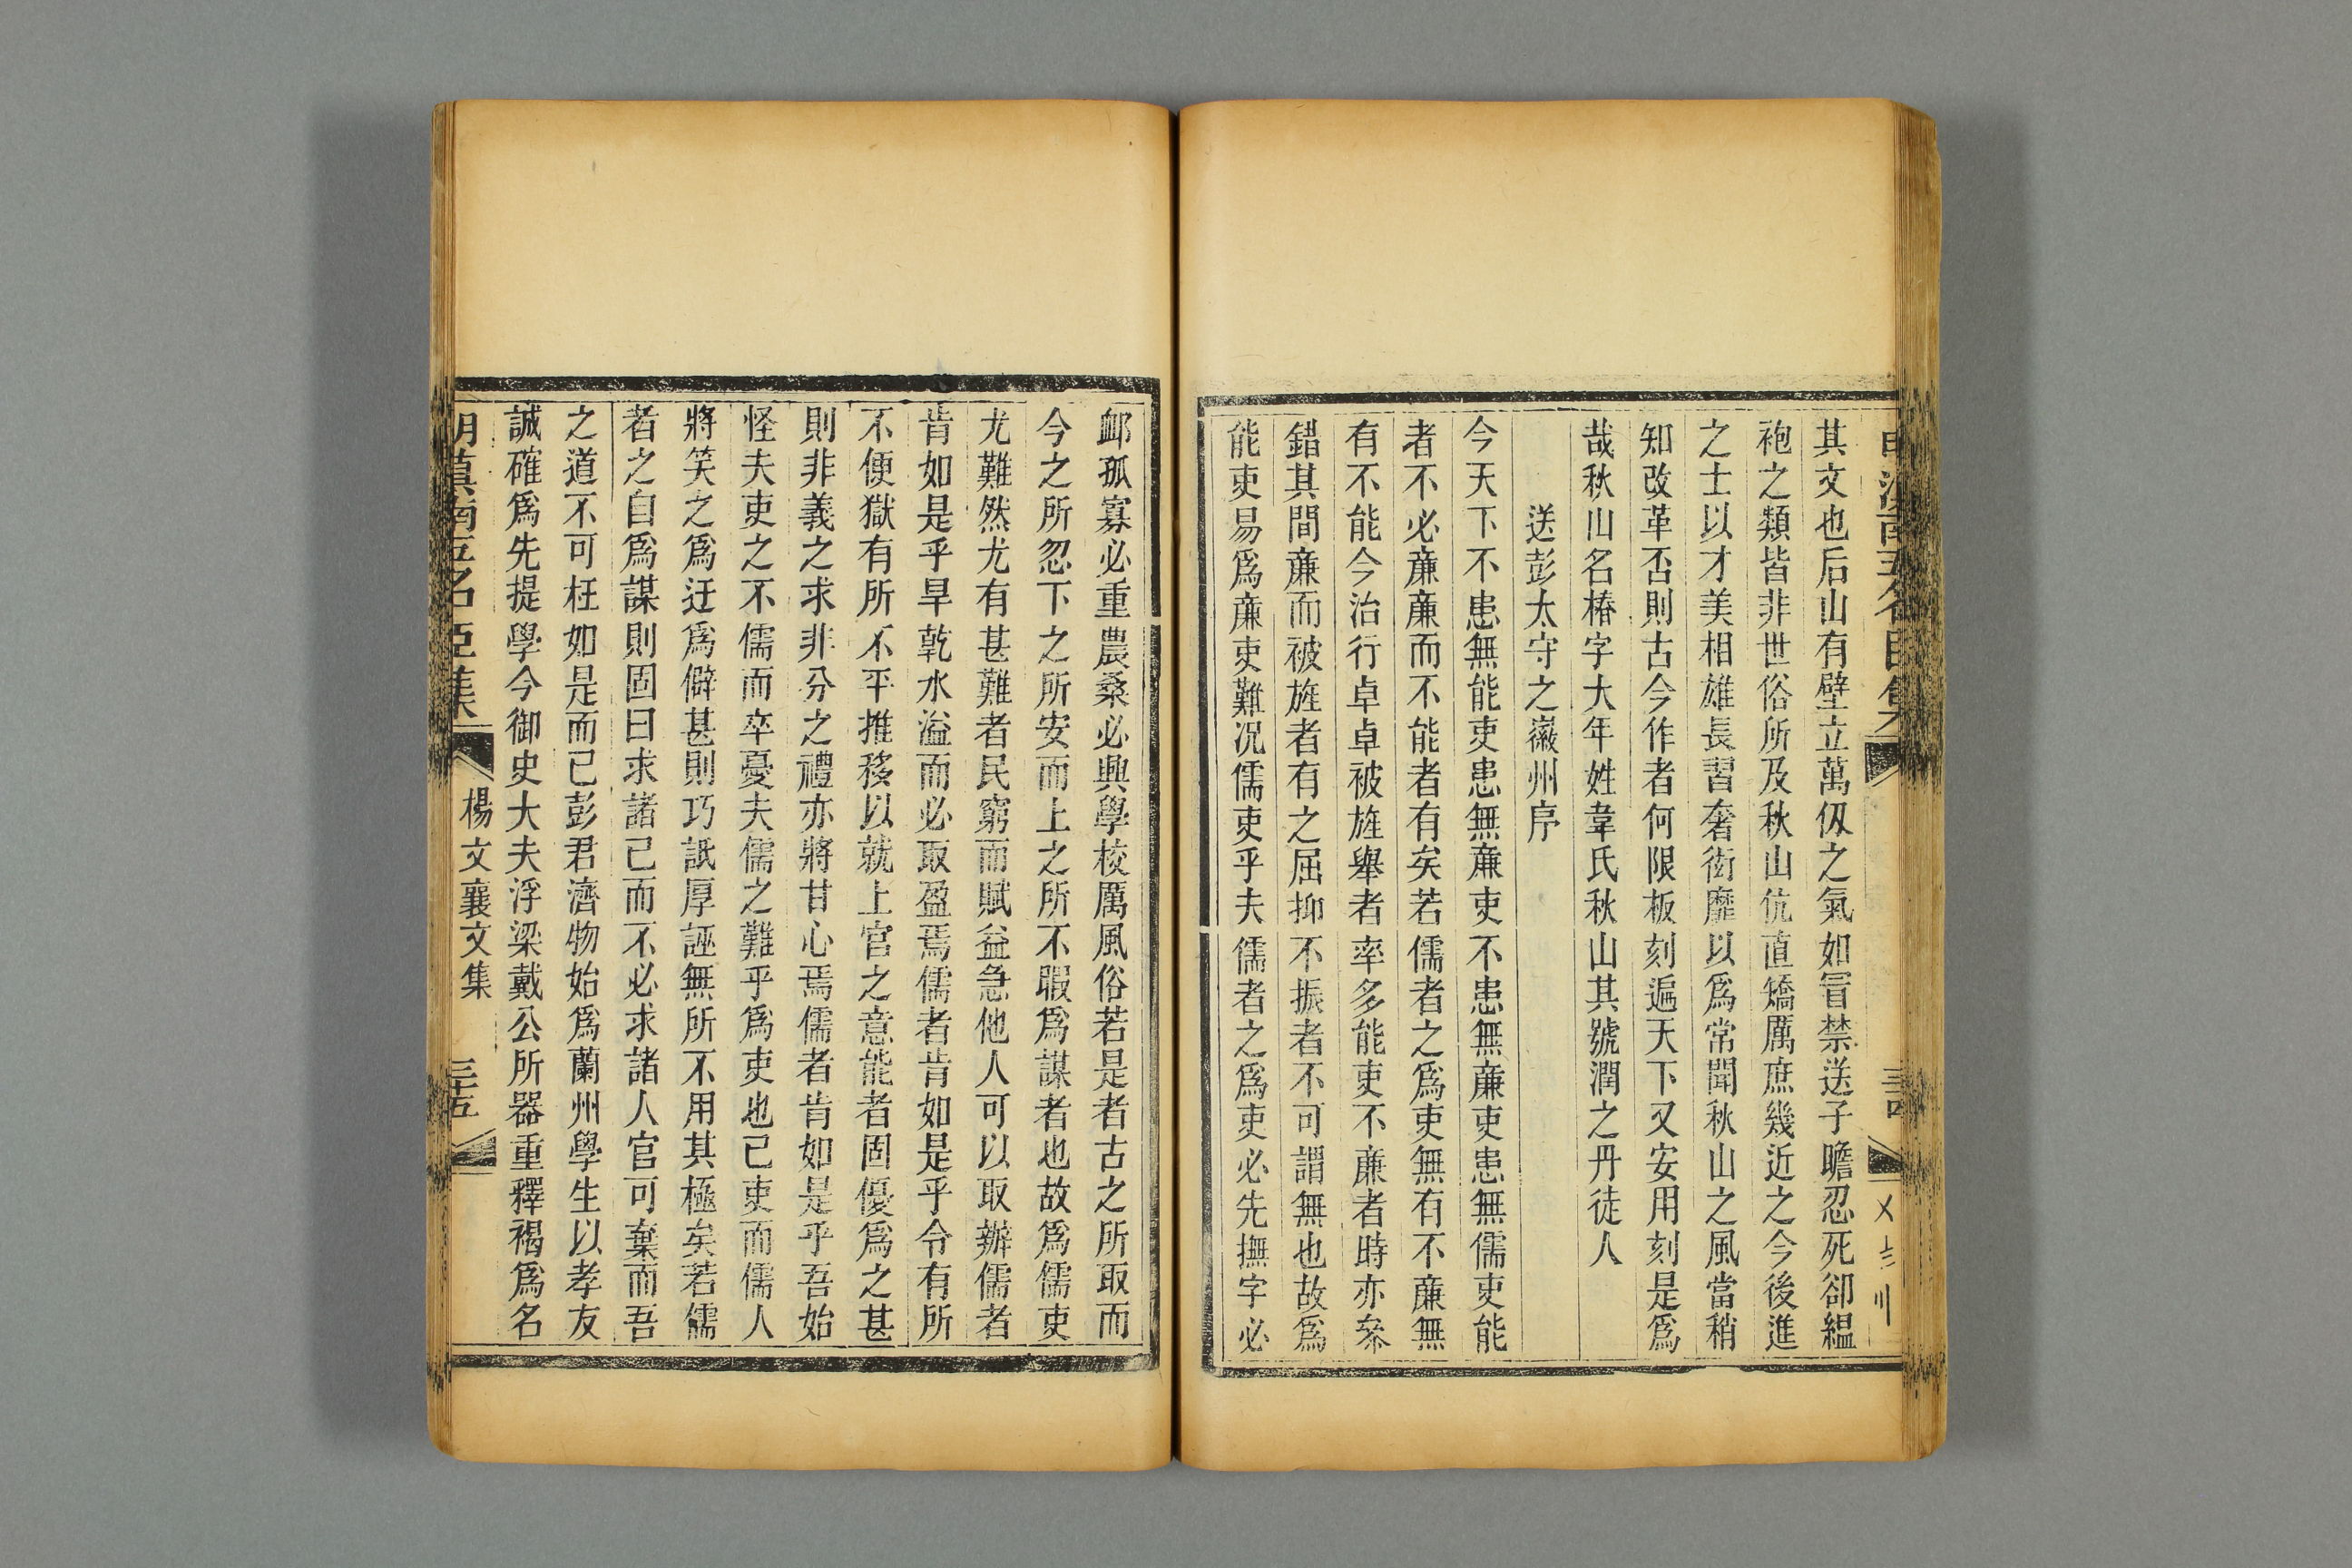 其文也后山有壁立萬仭之氣如冒禁送子瞻忍死卻縕
袍之類皆非世俗所及秋山伉直矯厲庶幾近之今後進
之士以才美相雄長習奢衒靡以爲常聞秋山之風當稍
知改革否則古今作者何限板刻遍天下又安用刻是爲
哉秋山名椿字大年姓韋氏秋山其號潤之丹徒人
送彭太守之徽州序
今天下不患無能吏患無廉吏不患無廉吏患無儒吏能
者不必廉廉而不能者有矣若儒者之爲吏無有不廉無
有不能今治行卓卓被旌舉者率多能吏不廉者時亦叅
錯其間廉而被旌者有之屈抑不振者不可謂無也故爲
能吏易爲廉吏難况儒吏乎夫儒者之爲吏必先撫字必
卹孤寡必重農桑必興學校厲風俗若是者古之所取而
今之所忽下之所安而上之所不暇爲謀者也故爲儒吏
尤難然尤有甚難者民窮而賦益急他人可以取辦儒者
肯如是乎旱乾水溢而必取盈焉儒者肯如是乎令有所
不便獄有所不平推移以就上官之意能者固優爲之甚
則非義之求非分之禮亦將甘心焉儒者肯如是乎吾始
怪夫吏之不儒而卒憂夫儒之難乎爲吏也已吏而儒人
將笑之爲迂爲僻甚則巧詆厚誣無所不用其極矣若儒
者之自爲謀則固曰求諸己而不必求諸人官可棄而吾
之道不可枉如是而已彭君濟物始爲蘭州學生以孝友
誠確爲先提學今御史大夫浮梁戴公所器重釋褐爲名
楊文襄文集
三十五